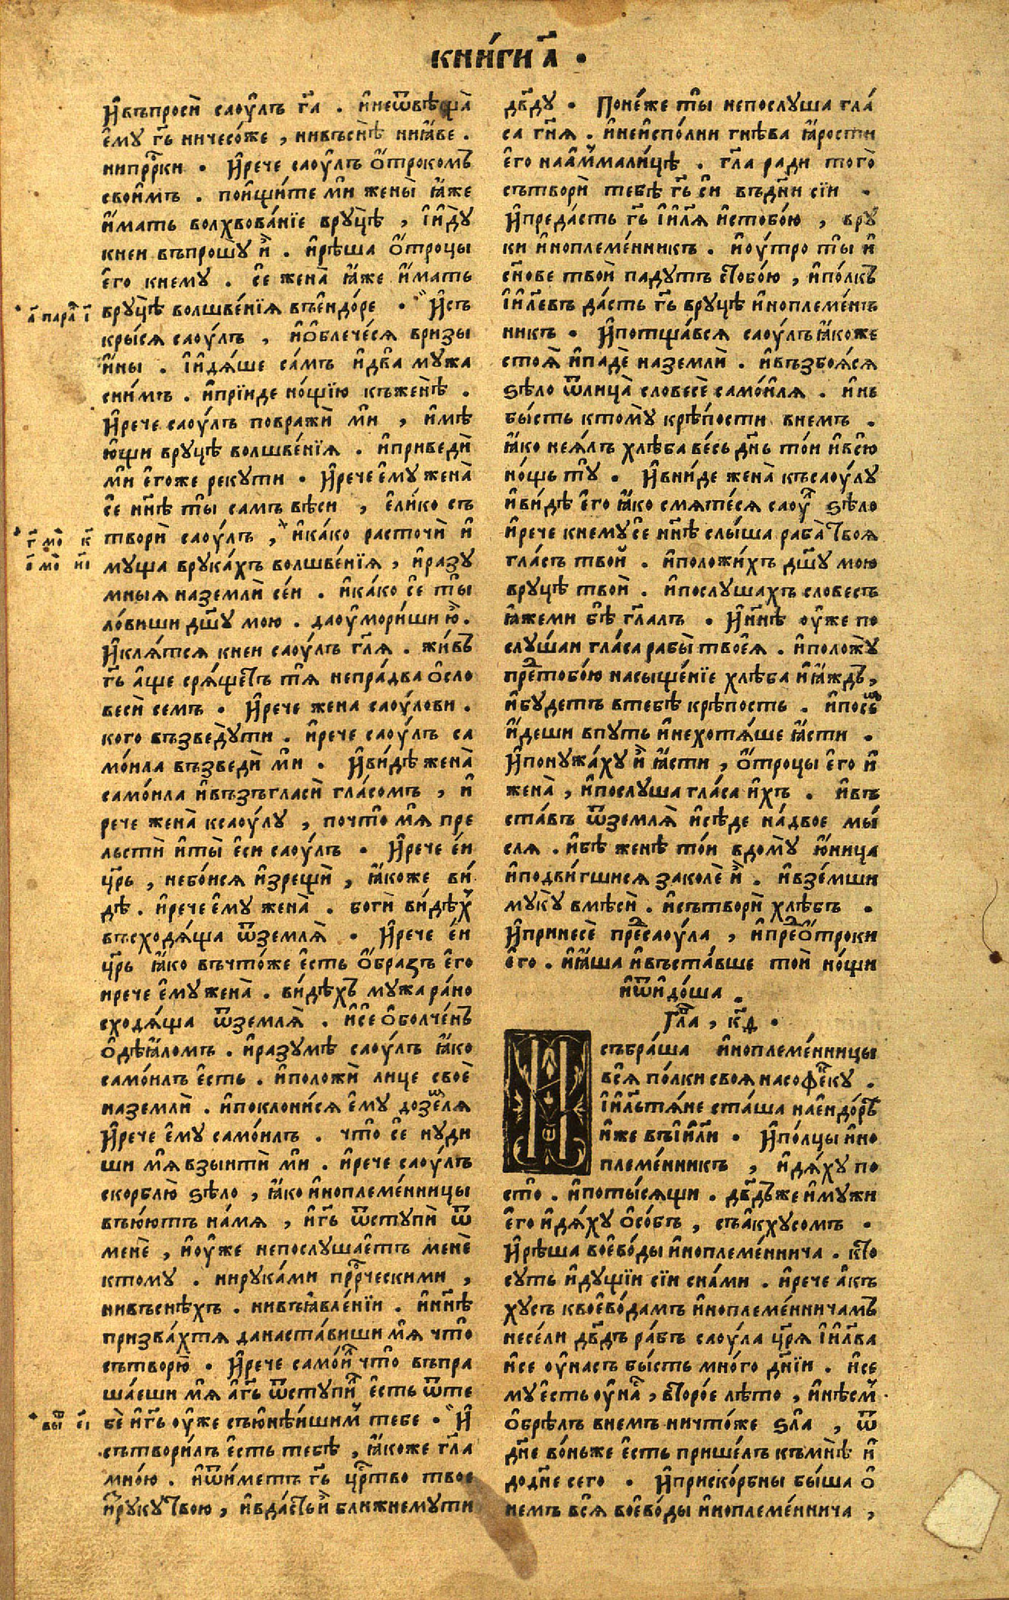 КНИ́ГИ А҃ •
И҆въпросѝ саоу́лъ г҃а . и҆неѿвѣща̀
є҆му г҃ь ничесо́же , нивъснѣ̀ нинꙗ҆ве .
нипрⷪ҇рки • И҆рече саоу́лъ ѻ҆́трокомъ
свои́мъ . пои҆щи́те мѝ жены̀ ꙗ҆́же
и҆́мать волхвова́нїе вруцѣ̀ , і҆и҆дꙋ̀
кнеи въпрошꙋ̀ и҆̀ . и҆рѣ́ша ѻ҆́троцы
є҆го кнемꙋ . сѐ жена̀ ꙗ҆́же и҆́мать
вруцѣ̀ волшве́нїѧ въє҆ндо́ре • И҆съ
а҃ пара і҃
кры́сѧ саоу́лъ , и҆ѻ҆блече́сѧ вризы
и҆́ны . і҆и҆дѧ́ше са́мъ и҆два̀ мꙋ́жа
сни́мъ . и҆прїи́де но́щїю къженѣ̀ .
И҆рече саоу́лъ повражѝ мѝ , и҆мѣ
ю́щи вруцѣ̀ волшве́нїѧ . и҆приведѝ
мѝ є҆го́же рекꙋти • И҆рече є҆мꙋ жена̀
сѐ нн҃ѣ ты̀ самъ вѣ́си , є҆ли́ко съ
творѝ саоу́лъ , и҆ка́ко расточѝ и҆
г҃ мо҃ к҃
є҃ мо҃ и҃і
мꙋ́ща врꙋка́хъ волшве́нїѧ , и҆ра́зꙋ
мныѧ наземлѝ се́и . и҆ка́ко сѐ ты̀
ло́виши дш҃ꙋ мою . даоу҆мори́ши ю҆̀ .
И҆клѧ́тсѧ кнеи саоу́лъ гл҃ѧ . жи́въ
г҃ь а҆́ще срѧ́щетъ тѧ̀ непра́вда ѻ҆сло
весѝ семъ • И҆рече жена саоу́лови .
кого възведꙋ́ти . и҆рече саоу́лъ са
мо́ила възведѝ мѝ . И҆ви́дѣ жена̀
само́ила и҆възъгласѝ гла́сомъ , и҆
рече жена̀ ксаоу́лꙋ , почто̀ мѧ̀ пре
льстѝ и҆ты̀ є҆си саоу́лъ • И҆рече є҆́и
цр҃ь , небо́исѧ и҆зрещѝ , ꙗ҆́коже ви́
дѣ . и҆рече є҆мꙋ жена̀ . боги ви́дѣⷯ
въсходѧ́ща ѿземлѧ̀ • И҆рече є҆́и
цр҃ь ꙗ҆́ко въчто́же є҆сть ѻ҆́бразъ є҆го
ирече є҆мꙋ жена̀ . ви́дѣхъ мꙋжа ра́но
сходѧ́ща ѿземлѧ̀ . и҆се ѻ҆болче́нъ
ѻ҆дѣꙗ҆́ломъ . и҆разꙋмѣ̀ саоу́лъ ꙗ҆́ко
само́илъ є҆сть . и҆положѝ лице своѐ
наземлѝ . и҆поклони́сѧ є҆мꙋ дозеⷨлѧ
И҆рече є҆мꙋ само́илъ . что̀ сѐ нꙋди
ши мѧ̀ взыитѝ мѝ . и҆рече саоу́лъ
скорблю̀ ѕѣ́ло , ꙗ҆́ко и҆ноплеме́нницы
въю́ютъ на́мѧ , и҆г҃ь ѿстꙋпѝ ѿ
менѐ , и҆оу҆́же непослꙋшае҆тъ менѐ
ктомꙋ . нирꙋка́ми прⷪ҇рческими ,
нивъснѣ́хъ . нивъꙗ҆вле́нїи . и҆нн҃ѣ
призва́хтѧ данаста́виши мѧ̀ что̀
сътворю̀ • И҆рече само́иⷧ что̀ въпра
ша́еши мѧ̀ а҆г҃ь ѿстꙋпиⷧ є҆сть ѿте
бѐ и҆г҃ь оу҆́же съюнѣ́ишимⸯ тебе • И҆
вы́ш е҃і
сътвори́лъ є҆сть тебѣ̀ , ꙗ҆́коже гл҃а
мно́ю . и҆ѿи́метъ г҃ь црⷭ҇тво твое
и҆зрꙋкꙋ̀твою , и҆вда́стъи҆̀ ближнемꙋти
дв҃дꙋ • Поне́же ты̀ непослꙋша гла́
са гн҃ѧ . и҆неи҆спо́лни гнѣ́ва ꙗ҆́рости
є҆го наа҆ммали́цѣ . гл҃а ради того̀
сътворѝ тебѣ̀ г҃ь си въдн҃и сїи .
И҆преда́сть г҃ь і҆и҃лѧ и҆стобо́ю , врꙋ́
ки и҆ноплеме́нникъ . и҆оу҆́тро ты̀ и҆
сн҃ове твоѝ падꙋтъ стобо́ю , и҆по́лкъ
і҆и҃левъ да́сть г҃ь вруцѣ̀ и҆ноплеме́нъ
никъ • И҆потща́всѧ саоу́лъꙗ҆́коже
стоѧ̀ и҆падѐ наземлѝ . и҆възбоѧ́сѧ
ѕѣ́ло ѿлица̀ словесѐ само́илѧ . и҆нь
бы́сть ктомꙋ̀ крѣ́пости внемъ .
ꙗ҆́ко неꙗ҆́лъ хлѣ́ба весь дн҃ь то́и и҆всю̀
но́щь тꙋ̀ • И҆вни́де жена̀ къса́оулꙋ
и҆ви́дѣ є҆го ꙗ҆́ко смѧте́сѧ саоуⷧ ѕѣ́ло
и҆рече кнемꙋ се нн҃ѣ слы́ша раба̀ твоѧ
гла́съ твои҆ . и҆положи́хъ дш҃ꙋ мою
врꙋцѣ̀ твоѝ . и҆послꙋшахъ словесъ
ꙗ҆́жеми бѣ̀ гл҃алъ • И҆нн҃ѣ оу҆́же по
слꙋ́шаи гла́са рабы̀ твоеѧ̀ . и҆положꙋ
преⷣтобо́ю насыще́нїе хлѣ́ба и҆ꙗ҆́ждь ,
и҆бꙋ́детъ втебѣ̀ крѣ́пость . и҆посе́мъ
и҆́деши впꙋть и҆нехотѧ́ше ꙗ҆́сти .
И҆понꙋжа́хꙋ и҆̀ ꙗ҆́сти , ѻ҆́троцы є҆го и҆
жена̀ , и҆послꙋша гла́са и҆́хъ . и҆въ
ста́въ ѿземлѧ̀ и҆сѣ́де на́двое мы́
слѧ . и҆бѣ̀ женѣ̀ то́и вдомꙋ̀ ю҆́ница
и҆подви́гшисѧ заколѐ и҆̀ . и҆взе́мши
мꙋкꙋ̀ вмѣсѝ . и҆сътворѝ хлѣ́бъ •
И҆принесѐ преⷣсаоу́ла , и҆преⷣѻ҆́троки
є҆го . и҆ꙗ҆́ша и҆въста́вше тоѝ но́щи
и҆ѿи҆до́ша .
Гла̀ , к҃д •
Събра́ша и҆ноплеме́нницы
всѧ̀ по́лки своѧ насофе́кꙋ .
і҆и҃льтѧ́не ста́ша нає҆ндо́рѣ
и҆́же въі҆и҃ли • И҆по́лцы и҆но
племе́нникъ , и҆дѧ́хꙋ по
сто̀ . и҆поты́сѧщи . дв҃дъже и҆мꙋжи
є҆го и҆дѧ́хꙋ ѻ҆со́бъ , съа҆кхꙋ́сомъ •
И҆рѣ́ша воево́ды и҆ноплеме́ннича . кто̀
сꙋть и҆дꙋщїи сїи сна́ми . и҆рече а҆́къ
хꙋсъ квоево́дамъ и҆ноплеме́нничамъ
несе́ли дв҃дъ ра́бъ саоу́ла цр҃ѧ і҆и҃лва
и҆се оу҆на́съ бы́сть мно́го дн҃їи . и҆се
мꙋ є҆сть оу҆наⷭ , второ́е лѣ́то , и҆нѣсмⸯ
ѻ҆брѣ́лъ внемъ ничто́же ѕла̀ , ѿ
дн҃е во́ньже є҆сть прише́лъ къмнѣ̀ и҆
додн҃е сего • И҆приско́рбны бы́ша ѻ҆
немъ всѧ̀ воево́ды и҆ноплеме́ннича ,